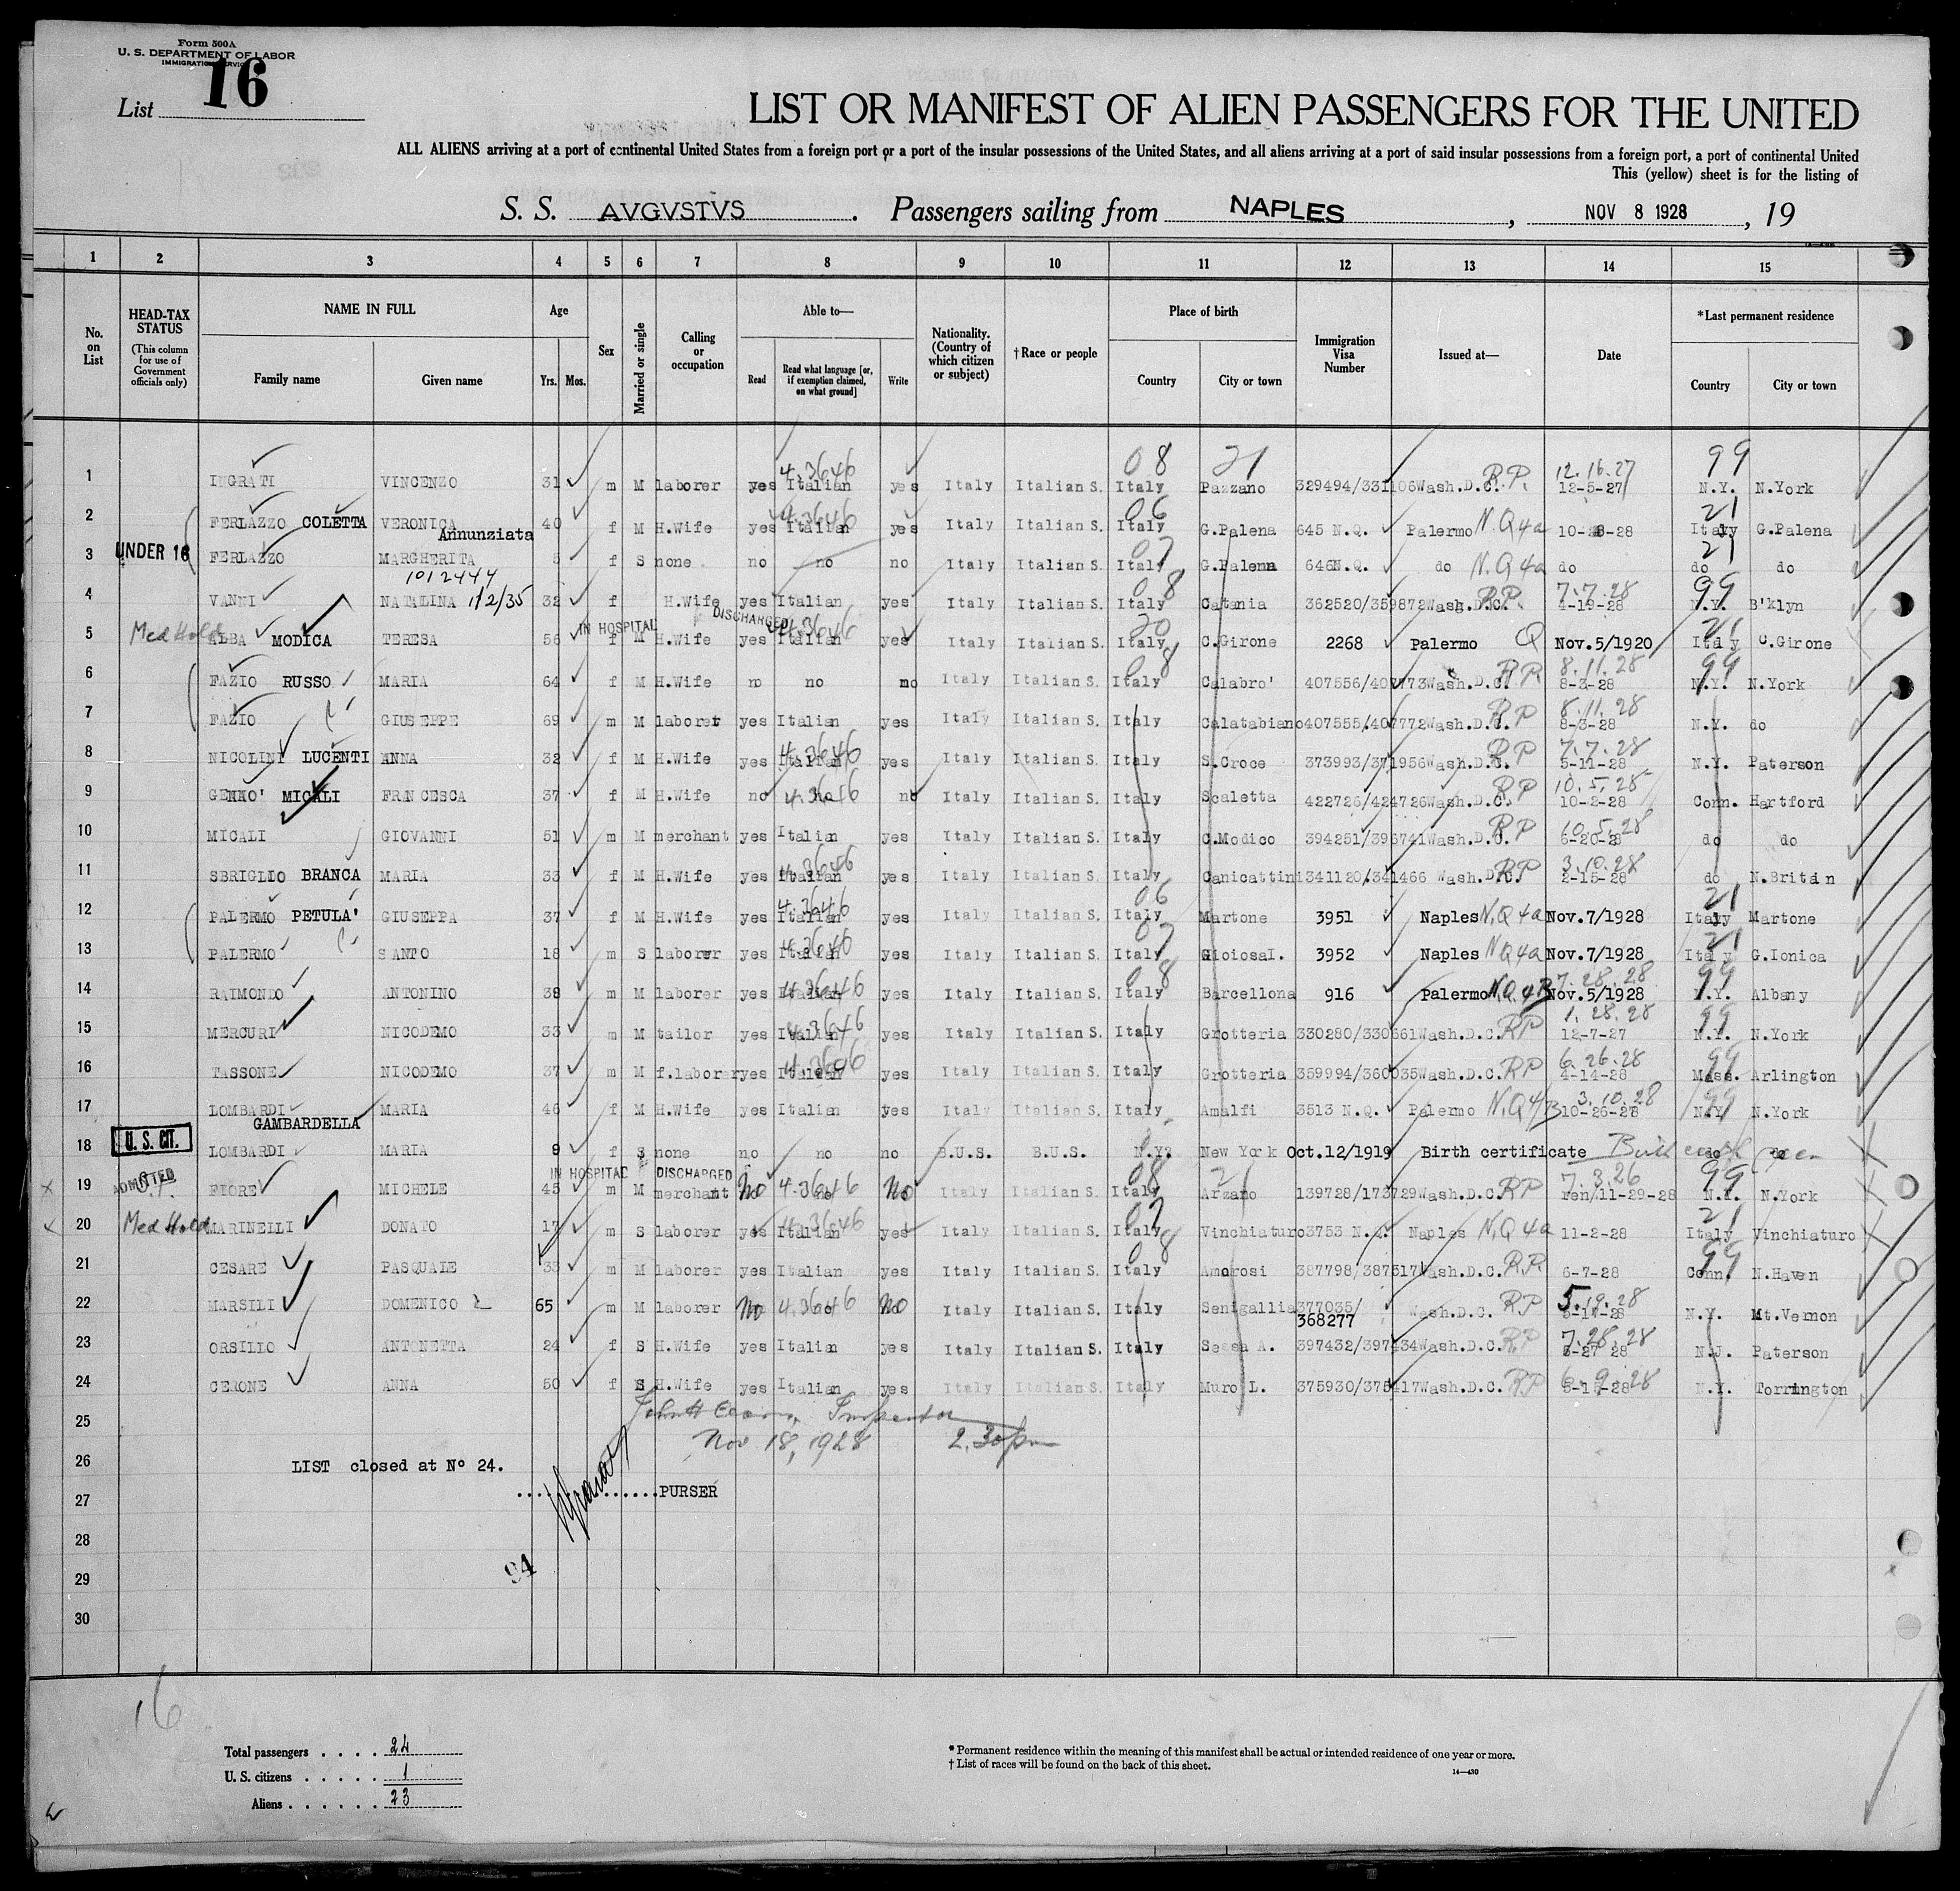 Form 500A
U. S. DEPARTMENT OF LABOR
IMMIGRATION SERVICE
List 16
LIST OR MANIFEST OF ALIEN PASSENGERS FOR THE UNITED
ALL ALIENS arriving at a port of continental United States from a foreign port or a port of the insular possessions of the United States, and all aliens arriving at a port of said insular possessions from a foreign port, a port of continental United
This (yellow) sheet is for the listing of
S. S. AVGVSTVS . Passengers sailing from NAPLES , NOV 8 1928 , 19
1 2 3 4 5 6 7 8 9 10 11 12 13 14 15
No. on List
HEAD-TAX STATUS
(This column for use of Government officials only)
NAME IN FULL
Family name Given name
Age
Yrs. Mos.
Sex
Married or single
Calling or occupation
Able to—
Read Read what language [or, if exemption claimed, on what ground] Write
Nationality. (Country of which citizen or subject)
†Race or people
Place of birth
Country City or town
Immigration Visa Number
Issued at—
Date
*Last permanent residence
Country City or town
08 21 12.16.27 99
1 INGRATI VINCENZO 31 m M laborer yes Italian yes Italy Italian S. Italy Pazzano 329494/331106 Wash.D.C. R.P. 12-5-27 N.Y. N.York
2 FERLAZZO COLETTA VERONICA Annunziata 40 f M H.Wife yes Italian yes Italy Italian S. Italy G.Palena 645 N.Q. Palermo N.Q4a 10-28 Italy G.Palena
UNDER 16
3 FERLAZZO MARGHERITA 5 f S none no no no Italy Italian S. Italy G.Palena 646N.Q. do N.Q4a do do do
1012444
4 VANNI NATALINA 1/2/35 32 f H.Wife yes Italian yes Italy Italian S. Italy Catania 362520/359872 Wash.D.C. R.P. 7.7.28 4-19-28 99 N.Y. B'klyn
IN HOSPITAL DISCHARGED
Med Hold
5 ALBA MODICA TERESA 56 f M H.Wife yes Italian yes Italy Italian S. Italy C.Girone 2268 Palermo Q Nov.5/1920 Italy C.Girone
6 FAZIO RUSSO MARIA 64 f M H.Wife no no no Italy Italian S. Italy Calabro' 407556/402773 Wash.D.C. RR 8.11.28 8-3-28 99 N.Y. N.York
7 FAZIO GIUSEPPE 69 m M laborer yes Italian yes Italy Italian S. Italy Calatabiano 407555/407772 Wash.D.C. RP 8.11.28 8-3-28 N.Y. do
8 NICOLINI LUCENTI ANNA 32 f M H.Wife yes Italian yes Italy Italian S. Italy S.Croce 373993/371956 Wash.D.C. RP 7.7.28 5-11-28 N.Y. Paterson
9 MICALI FRANCESCA 37 f M H.Wife no no no Italy Italian S. Italy Scaletta 422726/424726 Wash.D.C. RP 10.5.28 10-2-28 Conn. Hartford
10 MICALI GIOVANNI 51 m M merchant yes Italian yes Italy Italian S. Italy C.Modico 394251/396741 Wash.D.C. RP 10.5.28 6-20-28 do do
11 SBRIGLIO BRANCA MARIA 33 f M H.Wife yes Italian yes Italy Italian S. Italy Canicattini 341120/341466 Wash.D.C. RP 3.10.28 2-15-28 do N.Britan
12 PALERMO PETULA' GIUSEPPA 37 f M H.Wife yes Italian yes Italy Italian S. Italy Martone 3951 Naples N.Q4a Nov.7/1928 Italy Martone
13 PALERMO SANTO 18 m S laborer yes Italian yes Italy Italian S. Italy GioiosaI. 3952 Naples N.Q4a Nov.7/1928 Italy G.Ionica
14 RAIMONDO ANTONINO 38 m M laborer yes Italian yes Italy Italian S. Italy Barcellona 916 Palermo 7.28.28 Nov.5/1928 99 N.Y. Albany
15 MERCURI NICODEMO 33 m M tailor yes Italian yes Italy Italian S. Italy Grotteria 330280/330661 Wash.D.C. RP 1.28.28 12-7-27 99 N.Y. N.York
16 TASSONE NICODEMO 37 m M f.laborer yes Italian yes Italy Italian S. Italy Grotteria 359994/360035 Wash.D.C. RP 6.26.28 4-14-28 99 Mass. Arlington
17 LOMBARDI GAMBARDELLA MARIA 46 f M H.Wife yes Italian yes Italy Italian S. Italy Amalfi 3513 N.Q. Palermo 3.10.28 10-26-28 99 N.Y. N.York
U. S. CIT.
18 LOMBARDI MARIA 9 f S none no no no B.U.S. B.U.S. N.Y. New York Oct.12/1919 Birth certificate do do
IN HOSPITAL DISCHARGED
ADMITTED
19 FIORE MICHELE 45 m M merchant No no No Italy Italian S. Italy Arzano 139728/173729 Wash.D.C. RP 7.3.26 ren/11-29-28 99 N.Y. N.York
Med Hold
20 MARINELLI DONATO 17 m S laborer yes Italian yes Italy Italian S. Italy Vinchiaturo 3753 N.Q. Naples N.Q4a 11-2-28 21 Italy Vinchiaturo
21 CESARE PASQUALE 35 m M laborer yes Italian yes Italy Italian S. Italy Amorosi 387798/387517 Wash.D.C. RR 6-7-28 99 Conn. N.Haven
22 MARSILI DOMENICO 65 m M laborer No no No Italy Italian S. Italy Senigallia 377035/368277 Wash.D.C. RP 5.19.28 5-17-28 N.Y. Mt.Vernon
23 ORSILLO ANTONETTA 24 f S H.Wife yes Italian yes Italy Italian S. Italy Sessa A. 397432/397434 Wash.D.C. RP 7.28.28 6-27 28 N.J. Paterson
24 CERONE ANNA 50 f S H.Wife yes Italian yes Italy Italian S. Italy Muro L. 375930/375417 Wash.D.C. RP 6.9.28 5-15-28 N.Y. Torrington
25 John H Inspector
Nov 18, 1928 2.30pm
26 LIST closed at No 24.
27 PURSER
28
29 94
30
16
Total passengers . . . . 24
U. S. citizens . . . . . 1
Aliens . . . . . . 23
* Permanent residence within the meaning of this manifest shall be actual or intended residence of one year or more.
† List of races will be found on the back of this sheet.
14—430